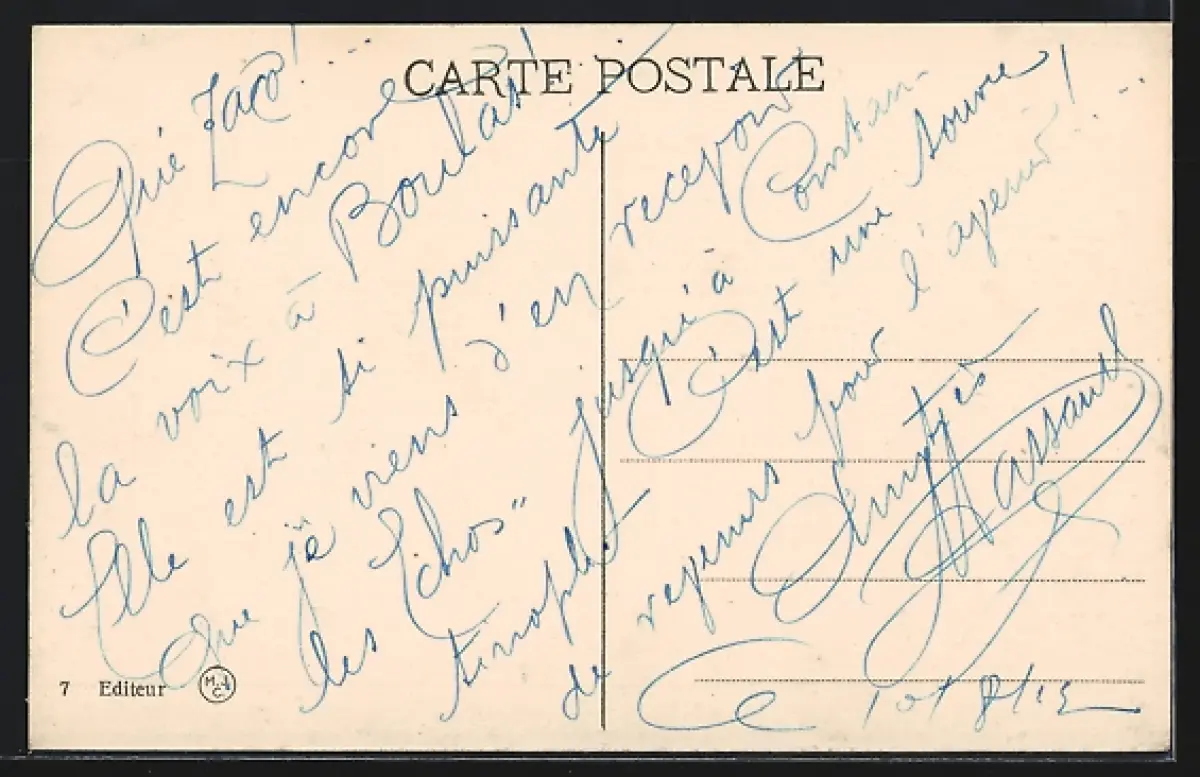 CARTE POSTALE
Qué Jaco! ...
C'est encore
la voix à Boulas!
Elle est si puissante
que je viens d'en recevoir
les "Echos" jusqu'à Constan-
tinople! C'est une source
de rajeunis pour l'avenir! ...
Amitiés
Hassaud
Ce 10/8/12
7 Editeur